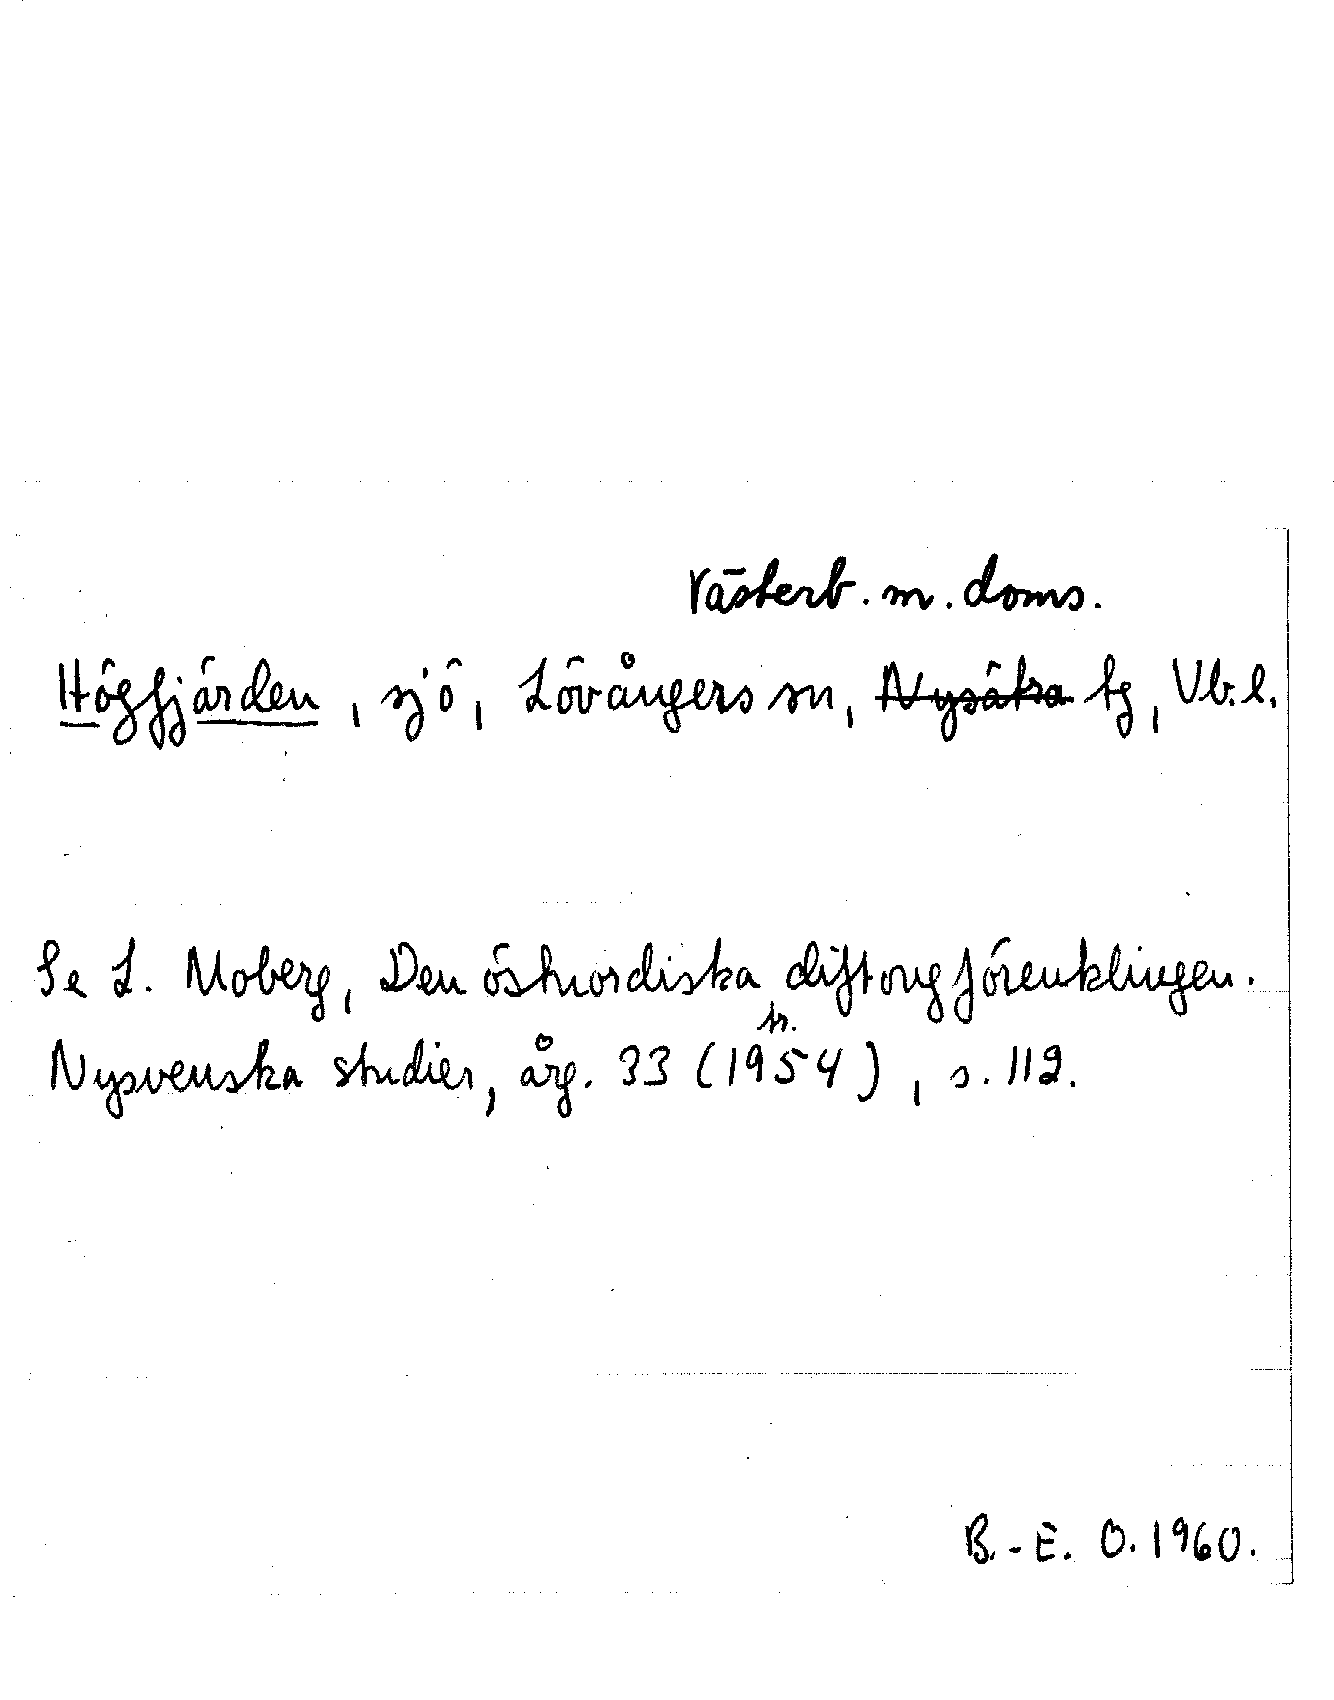 Västerb. m. doms.
Högfjärden, sjö, Lövångers sn, Nysätra tg, Vb. l.
Se L. Moberg, Den östnordiska diftongförenklingen.
tr.
Nysvenska studier, årg. 33 (1954), s. 112.
B.-E. O. 1960.